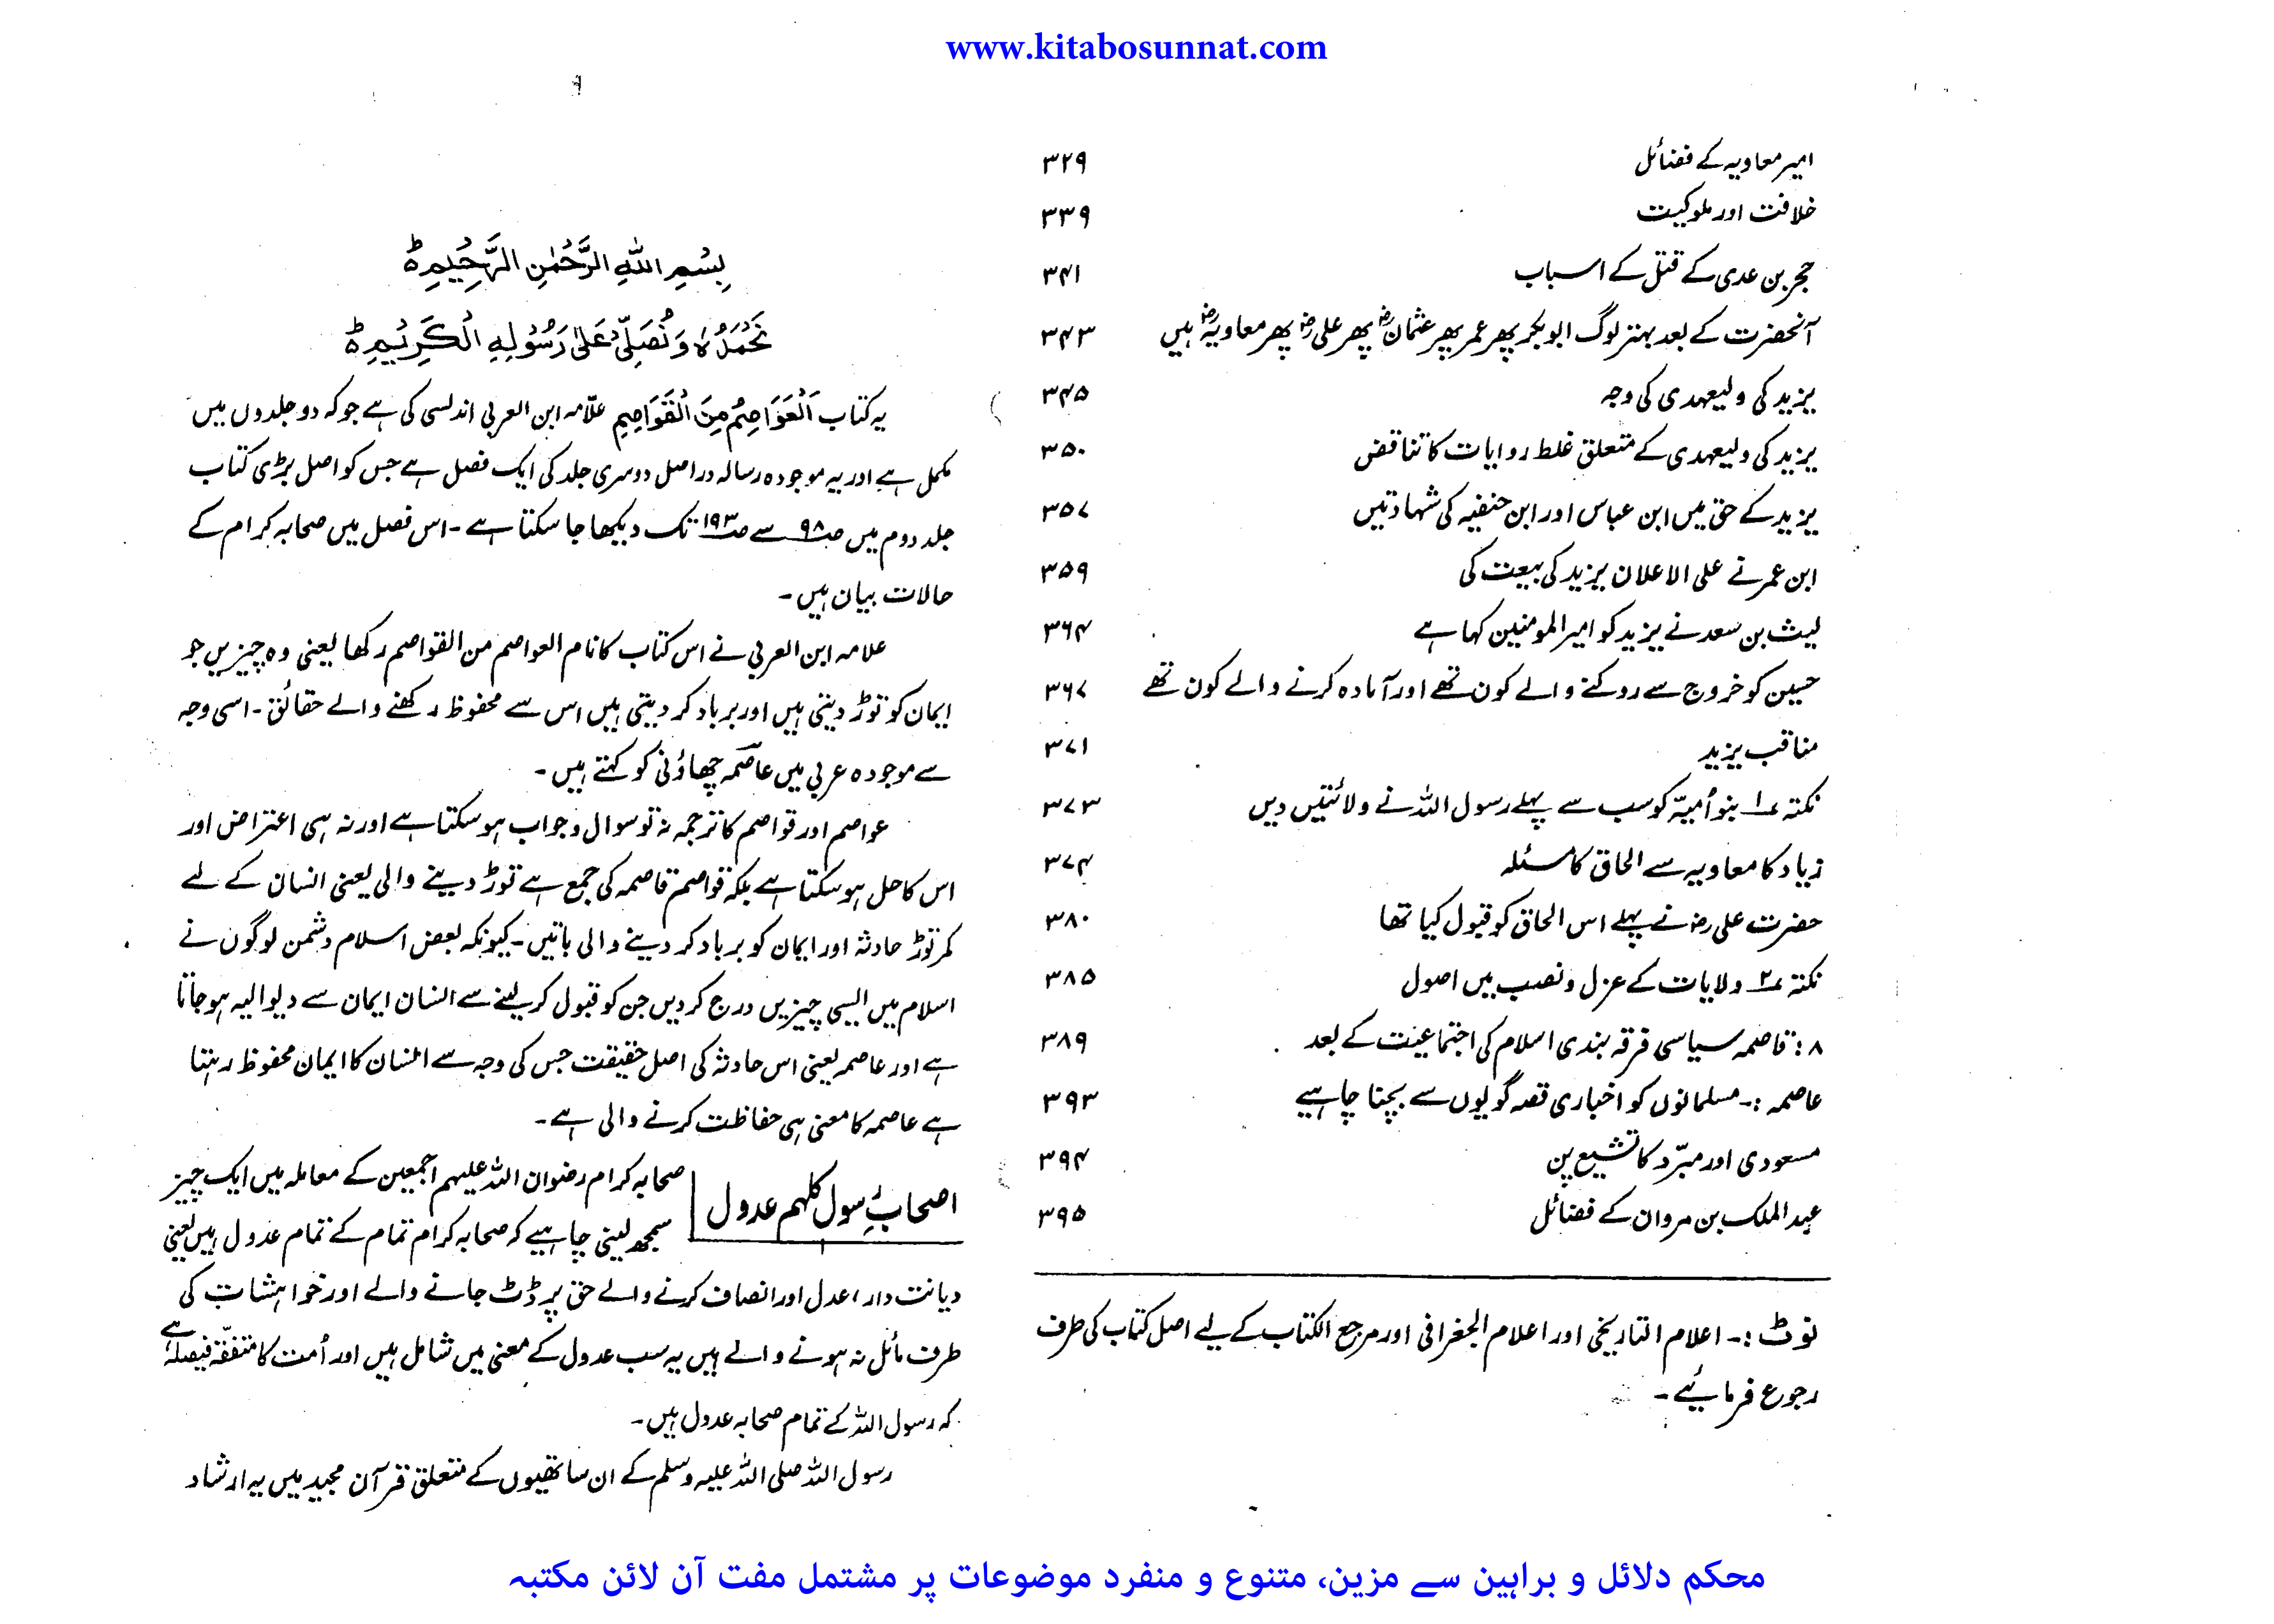 www.kitabosunnat.com
امیر معاویہ کے فضائل ۳۲۹
خلافت اور ملوکیت ۳۳۹
حجر بن عدی کے قتل کے اسباب ۳۴۱
آنحضرت کے بعد بہتر لوگ ابوبکر پھر عمر پھر عثمانؓ پھر علیؓ پھر معاویہؓ ہیں ۳۴۳
یزید کی ولیعہدی کی وجہ ۳۴۵
یزید کی ولیعہدی کے متعلق غلط روایات کا تناقض ۳۵۰
یزید کے حق میں ابن عباس اور ابن حنفیہ کی شہادتیں ۳۵۷
ابن عمر نے علی الاعلان یزید کی بیعت کی ۳۵۹
لیث بن سعد نے یزید کو امیر المومنین کہا ہے ۳۶۴
حسین کو خروج سے روکنے والے کون تھے اور آمادہ کرنے والے کون تھے ۳۶۷
مناقب یزید ۳۷۱
نکتہ ۱؎ بنو اُمیّہ کو سب سے پہلے رسول اللہ نے ولائتیں دیں ۳۷۳
زیاد کا معاویہ سے الحاق کا مسئلہ ۳۷۴
حضرت علی رض نے پہلے اس الحاق کو قبول کیا تھا ۳۸۰
نکتہ ۲؎ ولایات کے عزل و نصب میں اصول ۳۸۵
۸: قاصمہ سیاسی فرقہ بندی اسلام کی اجتماعیت کے بعد ۳۸۹
عاصمہ :۔ مسلمانوں کو اخباری قصہ گویوں سے بچنا چاہیے ۳۹۳
مسعودی اور مبرّد کا تشیع پن ۳۹۴
عبد الملک بن مروان کے فضائل ۳۹۵
نوٹ :۔ اعلام التاریخی اور اعلام الجغرافی اور مرجع الکتاب کے لیے اصل کتاب کی طرف
رجوع فرمائیے ۔
بِسْمِ اللّٰهِ الرَّحْمٰنِ الرَّحِیْمِ ط
نَحْمَدُهٗ وَ نُصَلِّیْ عَلٰی رَسُوْلِهِ الْکَرِیْمِ ط
یہ کتاب اَلْعَوَاصِمُ مِنَ الْقَوَاصِمِ علّامہ ابن العربی اندلسی کی ہے جو کہ دو جلدوں میں
مکمل ہے اور یہ موجودہ رسالہ دراصل دوسری جلد کی ایک فصل ہے جس کو اصل بڑی کتاب
جلد دوم میں صـ۹۸ سے صـ۱۹۳ تک دیکھا جا سکتا ہے ۔ اس فصل میں صحابہ کرام کے
حالات بیان ہیں ۔
علامہ ابن العربی نے اس کتاب کا نام العواصم من القواصم رکھا یعنی وہ چیزیں جو
ایمان کو توڑ دیتی ہیں اور برباد کر دیتی ہیں اس سے محفوظ رکھنے والے حقائق ۔ اسی وجہ
سے موجودہ عربی میں عاصمہ چھاؤنی کو کہتے ہیں ۔
عواصم اور قواصم کا ترجمہ نہ تو سوال و جواب ہو سکتا ہے اور نہ ہی اعتراض اور
اس کا حل ہو سکتا ہے بلکہ قواصم قاصمہ کی جمع ہے توڑ دینے والی یعنی انسان کے لیے
کمر توڑ حادثہ اور ایمان کو برباد کر دینے والی باتیں ۔ کیونکہ بعض اسلام دشمن لوگوں نے
اسلام میں ایسی چیزیں درج کر دیں جن کو قبول کر لینے سے انسان ایمان سے دیوالیہ ہو جاتا
ہے اور عاصمہ یعنی اس حادثہ کی اصل حقیقت جس کی وجہ سے انسان کا ایمان محفوظ رہتا
ہے عاصمہ کا معنی ہی حفاظت کرنے والی ہے ۔
اصحابِ رسول کلہم عدول
صحابہ کرام رضوان اللہ علیہم اجمعین کے معاملہ میں ایک چیز
سمجھ لینی چاہیے کہ صحابہ کرام تمام کے تمام عدول ہیں یعنی
دیانت دار، عدل اور انصاف کرنے والے حق پر ڈٹ جانے والے اور خواہشات کی
طرف مائل نہ ہونے والے ہیں یہ سب عدول کے معنی میں شامل ہیں اور اُمت کا متفقّہ فیصلہ ہے
کہ رسول اللہ کے تمام صحابہ عدول ہیں ۔
رسول اللہ صلی اللہ علیہ وسلم کے ان ساتھیوں کے متعلق قرآن مجید میں یہ ارشاد
محکم دلائل و براہین سے مزین، متنوع و منفرد موضوعات پر مشتمل مفت آن لائن مکتبہ